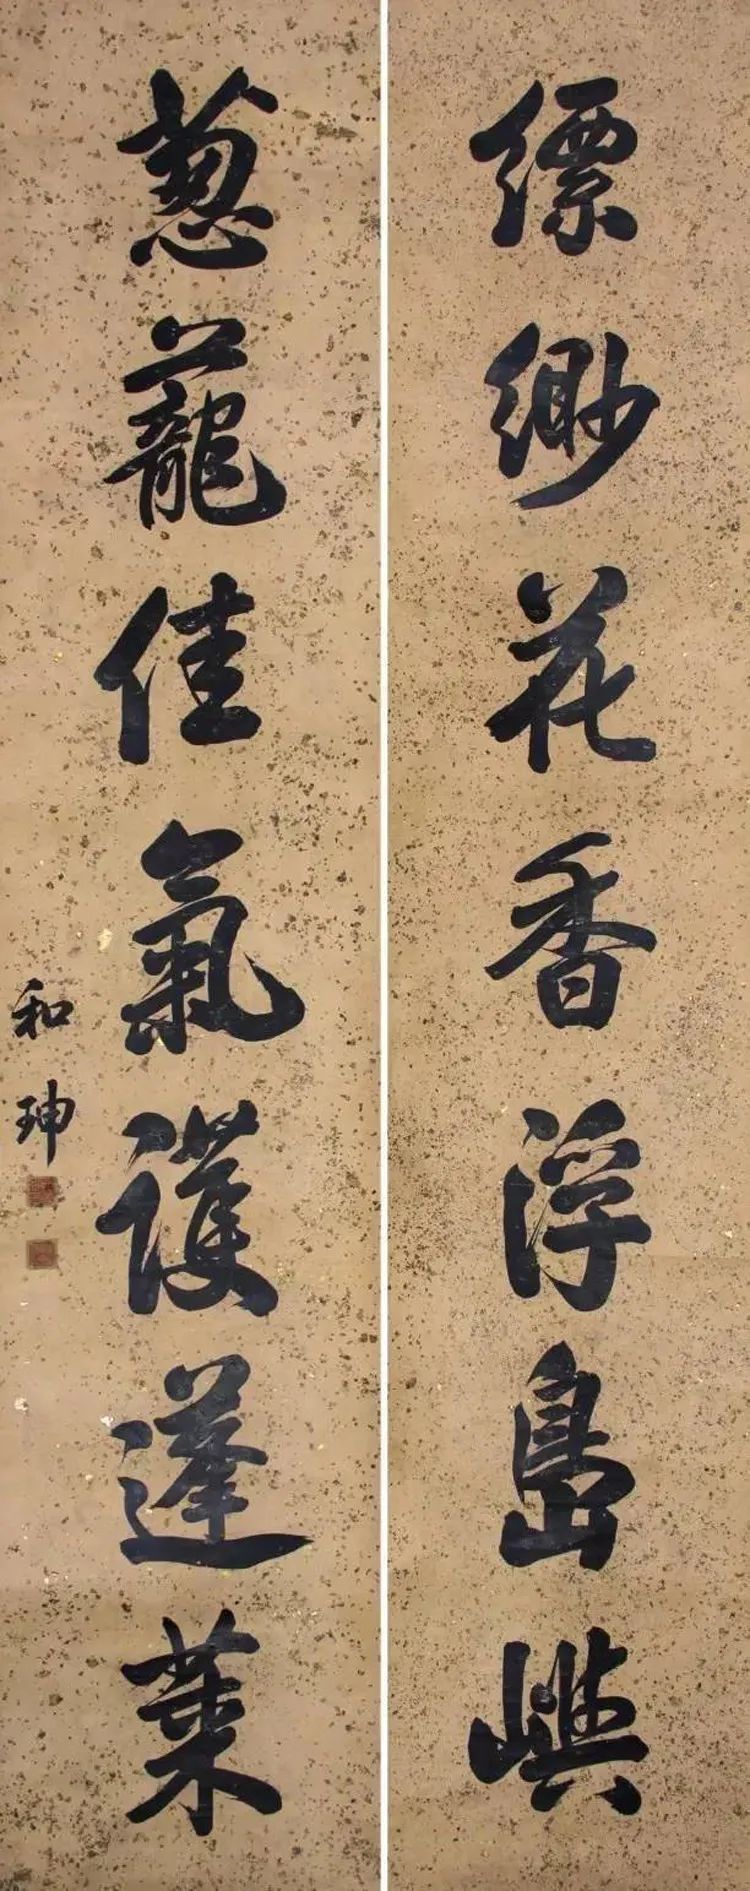 縹緲花香浮島嶼
葱蘢佳氣護蓬萊
和珅